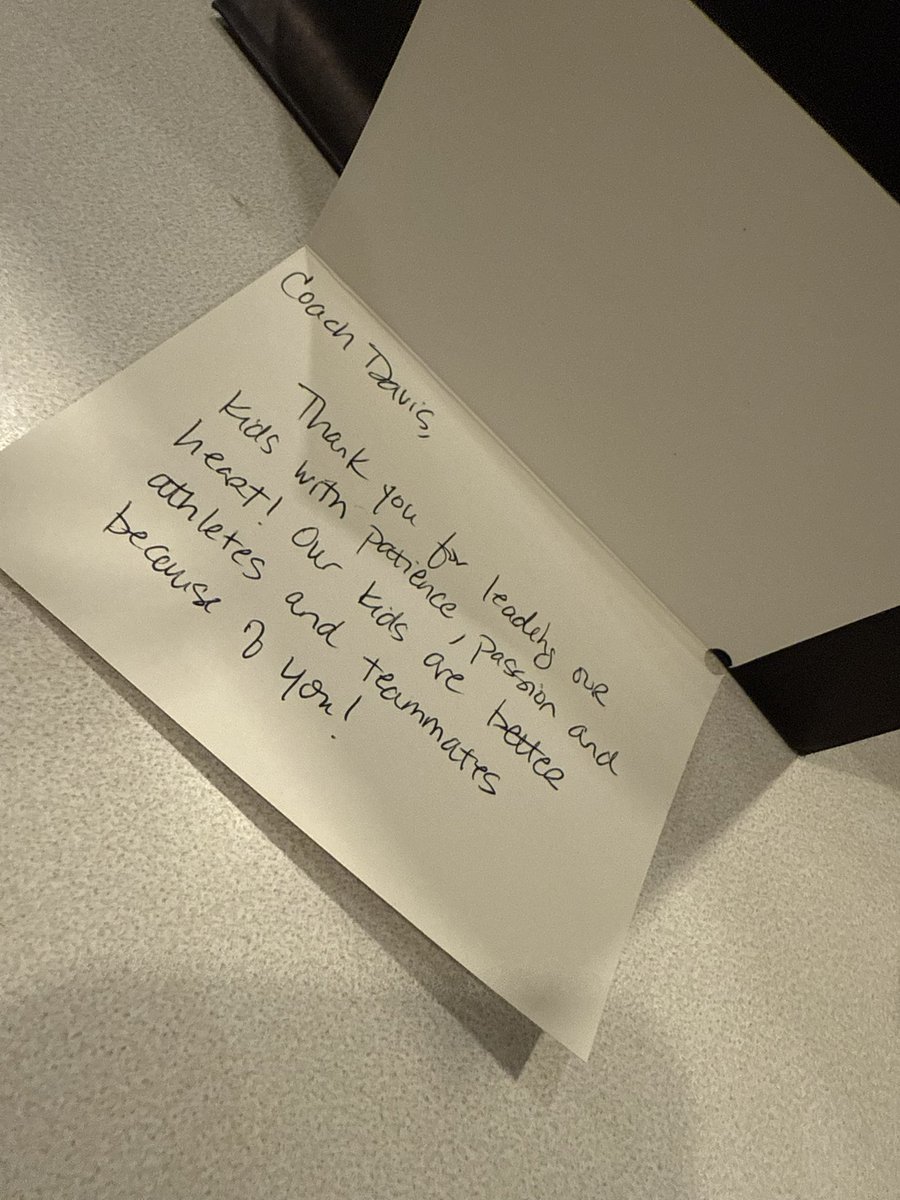 Coach Davis,
Thank you for leading our
kids with patience, passion and
heart! Our kids are better
athletes and teammates
because of you!